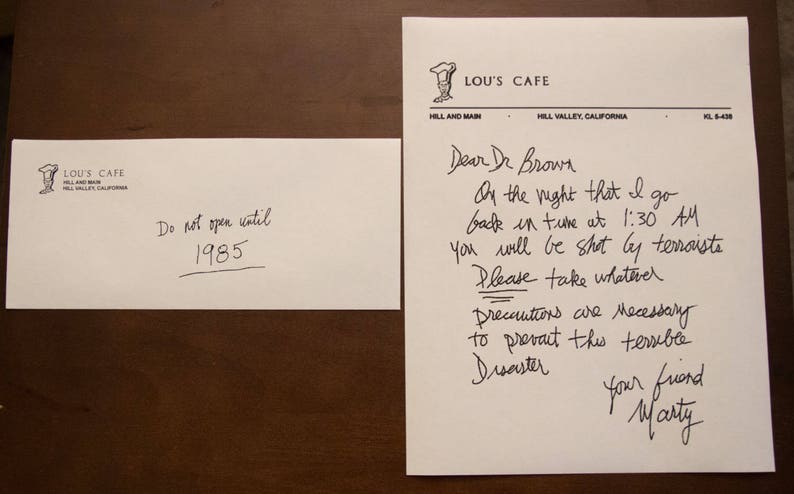 LOU'S CAFE
HILL AND MAIN
HILL VALLEY, CALIFORNIA
Do not open until
1985
LOU'S CAFE
HILL AND MAIN · HILL VALLEY, CALIFORNIA · KL 5-438
Dear Dr Brown
On the night that I go
back in time at 1:30 AM
you will be shot by terrorists
Please take whatever
precautions are necessary
to prevent this terrible
Disaster
Your friend
Marty